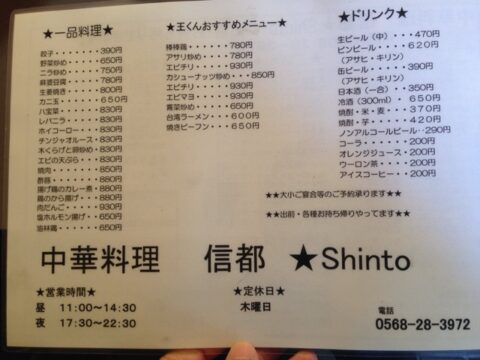 ★一品料理★
餃子・・・・・・・・390円
野菜炒め・・・・・・650円
ニラ炒め・・・・・・750円
麻婆豆腐・・・・・・780円
生姜焼き・・・・・・800円
カニ玉・・・・・・650円
八宝菜・・・・・・・830円
レバニラ・・・・・・830円
ホイコーロー・・・・830円
チンジャオルース・・830円
木くらげと卵炒め・・830円
エビの天ぷら・・・・830円
焼肉・・・・・・・・850円
酢豚・・・・・・・・880円
揚げ鶏のカレー煮・・880円
鶏のから揚げ・・・・880円
肉だんご・・・・・・930円
塩ホルモン揚げ・・・650円
油淋鶏・・・・・・・650円
★王くんおすすめメニュー★
棒棒鶏・・・・・・・780円
アサリ炒め・・・・・780円
エビチリ・・・・・・930円
カシューナッツ炒め・・・850円
エビチリ・・・・・・930円
エビマヨ・・・・・・930円
青菜炒め・・・・・・650円
台湾ラーメン・・・・600円
焼きビーフン・・・・650円
★ドリンク★
生ビール（中）・・・470円
ビンビール・・・・620円
（アサヒ・キリン）
缶ビール・・・・・・390円
（アサヒ・キリン）
日本酒（一合）・・350円
冷酒（300ml）・・650円
焼酎・米・麦・・・370円
焼酎・芋・・・・・420円
ノンアルコールビール・・290円
コーラ・・・・・・・200円
オレンジジュース・・200円
ウーロン茶・・・・・200円
アイスコーヒー・・・200円
★★大小ご宴会等のご予約承ります★★
★★出前・各種お持ち帰りやってます★★
中華料理 信都 ★Shinto
★営業時間★
昼 11:00～14:30
夜 17:30～22:30
★定休日★
木曜日
電話
0568-28-3972